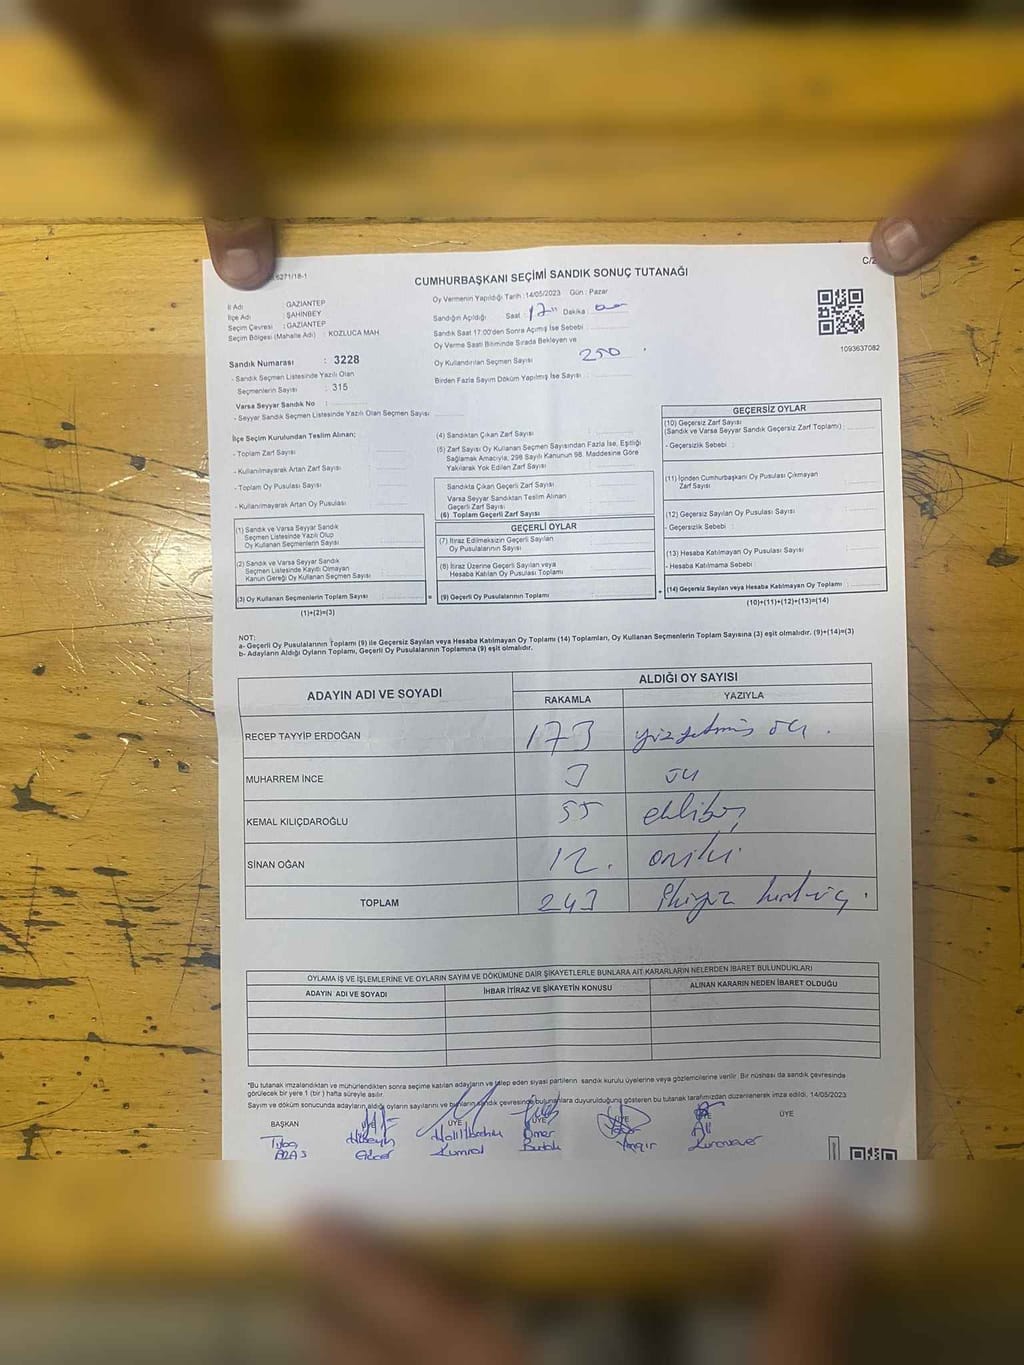 6271/18-1
C/2
CUMHURBAŞKANI SEÇİMİ SANDIK SONUÇ TUTANAĞI
İl Adı : GAZİANTEP
İlçe Adı : ŞAHİNBEY
Seçim Çevresi : GAZİANTEP
Seçim Bölgesi (Mahalle Adı) : KOZLUCA MAH
Sandık Numarası : 3228
- Sandık Seçmen Listesinde Yazılı Olan
Seçmenlerin Sayısı : 315
Varsa Seyyar Sandık No :
- Seyyar Sandık Seçmen Listesinde Yazılı Olan Seçmen Sayısı
Oy Vermenin Yapıldığı Tarih : 14/05/2023 Gün : Pazar
Sandığın Açıldığı Saat : 17 Dakika :
Sandık Saat 17.00'den Sonra Açımış İse Sebebi :
Oy Verme Saati Bitiminde Sırada Bekleyen ve
Oy Kullandırılan Seçmen Sayısı : 250
Birden Fazla Sayım Döküm Yapılmış İse Sayısı :
1093637082
İlçe Seçim Kurulundan Teslim Alınan;
- Toplam Zarf Sayısı :
- Kullanılmayarak Artan Zarf Sayısı :
- Toplam Oy Pusulası Sayısı :
- Kullanılmayarak Artan Oy Pusulası :
(1) Sandık ve Varsa Seyyar Sandık
Seçmen Listesinde Yazılı Olup
Oy Kullanan Seçmenlerin Sayısı :
(2) Sandık ve Varsa Seyyar Sandık
Seçmen Listesinde Kayıtlı Olmayan
Kanun Gereği Oy Kullanan Seçmen Sayısı :
(3) Oy Kullanan Seçmenlerin Toplam Sayısı :
(1)+(2)=(3)
(4) Sandıktan Çıkan Zarf Sayısı :
(5) Zarf Sayısı Oy Kullanan Seçmen Sayısından Fazla İse, Eşitliği
Sağlamak Amacıyla, 298 Sayılı Kanunun 98. Maddesine Göre
Yakılarak Yok Edilen Zarf Sayısı :
Sandıkta Çıkan Geçerli Zarf Sayısı :
Varsa Seyyar Sandıktan Teslim Alınan
Geçerli Zarf Sayısı :
(6) Toplam Geçerli Zarf Sayısı :
GEÇERLİ OYLAR
(7) İtiraz Edilmeksizin Geçerli Sayılan
Oy Pusulalarının Sayısı :
(8) İtiraz Üzerine Geçerli Sayılan veya
Hesaba Katılan Oy Pusulası Toplamı :
= (9) Geçerli Oy Pusulalarının Toplamı : +
GEÇERSİZ OYLAR
(10) Geçersiz Zarf Sayısı
(Sandık ve Varsa Seyyar Sandık Geçersiz Zarf Toplamı) :
- Geçersizlik Sebebi :
(11) İçinden Cumhurbaşkanı Oy Pusulası Çıkmayan
Zarf Sayısı :
(12) Geçersiz Sayılan Oy Pusulası Sayısı :
- Geçersizlik Sebebi :
(13) Hesaba Katılmayan Oy Pusulası Sayısı :
- Hesaba Katılmama Sebebi :
(14) Geçersiz Sayılan veya Hesaba Katılmayan Oy Toplamı :
(10)+(11)+(12)+(13)=(14)
NOT:
a- Geçerli Oy Pusulalarının Toplamı (9) ile Geçersiz Sayılan veya Hesaba Katılmayan Oy Toplamı (14) Toplamları, Oy Kullanan Seçmenlerin Toplam Sayısına (3) eşit olmalıdır. (9)+(14)=(3)
b- Adayların Aldığı Oyların Toplamı, Geçerli Oy Pusulalarının Toplamına (9) eşit olmalıdır.
ADAYIN ADI VE SOYADI
ALDIĞI OY SAYISI
RAKAMLA YAZIYLA
RECEP TAYYİP ERDOĞAN 173 yüzyetmiş üç.
MUHARREM İNCE 3 üç
KEMAL KILIÇDAROĞLU 55 ellibeş
SİNAN OĞAN 12. oniki.
TOPLAM 243 ikiyüz kırküç.
OYLAMA İŞ VE İŞLEMLERİNE VE OYLARIN SAYIM VE DÖKÜMÜNE DAİR ŞİKAYETLERLE BUNLARA AİT KARARLARIN NELERDEN İBARET BULUNDUKLARI
ADAYIN ADI VE SOYADI İHBAR İTİRAZ VE ŞİKAYETİN KONUSU ALINAN KARARIN NEDEN İBARET OLDUĞU
*Bu tutanak imzalandıktan ve mühürlendikten sonra seçime katılan adayların ve talep eden siyasi partilerin sandık kurulu üyelerine veya gözlemcilerine verilir. Bir nüshası da sandık çevresinde
görülecek bir yere 1 (bir) hafta süreyle asılır.
Sayım ve döküm sonucunda adayların aldığı oyların sayılarını ve bunların sandık çevresinde bulunanlara duyurulduğunu gösteren bu tutanak tarafımızdan düzenlenerek imza edildi. 14/05/2023
BAŞKAN ÜYE ÜYE ÜYE ÜYE ÜYE ÜYE
Hüseyin Halil İbrahim Ömer Ali
ARAS Kumral